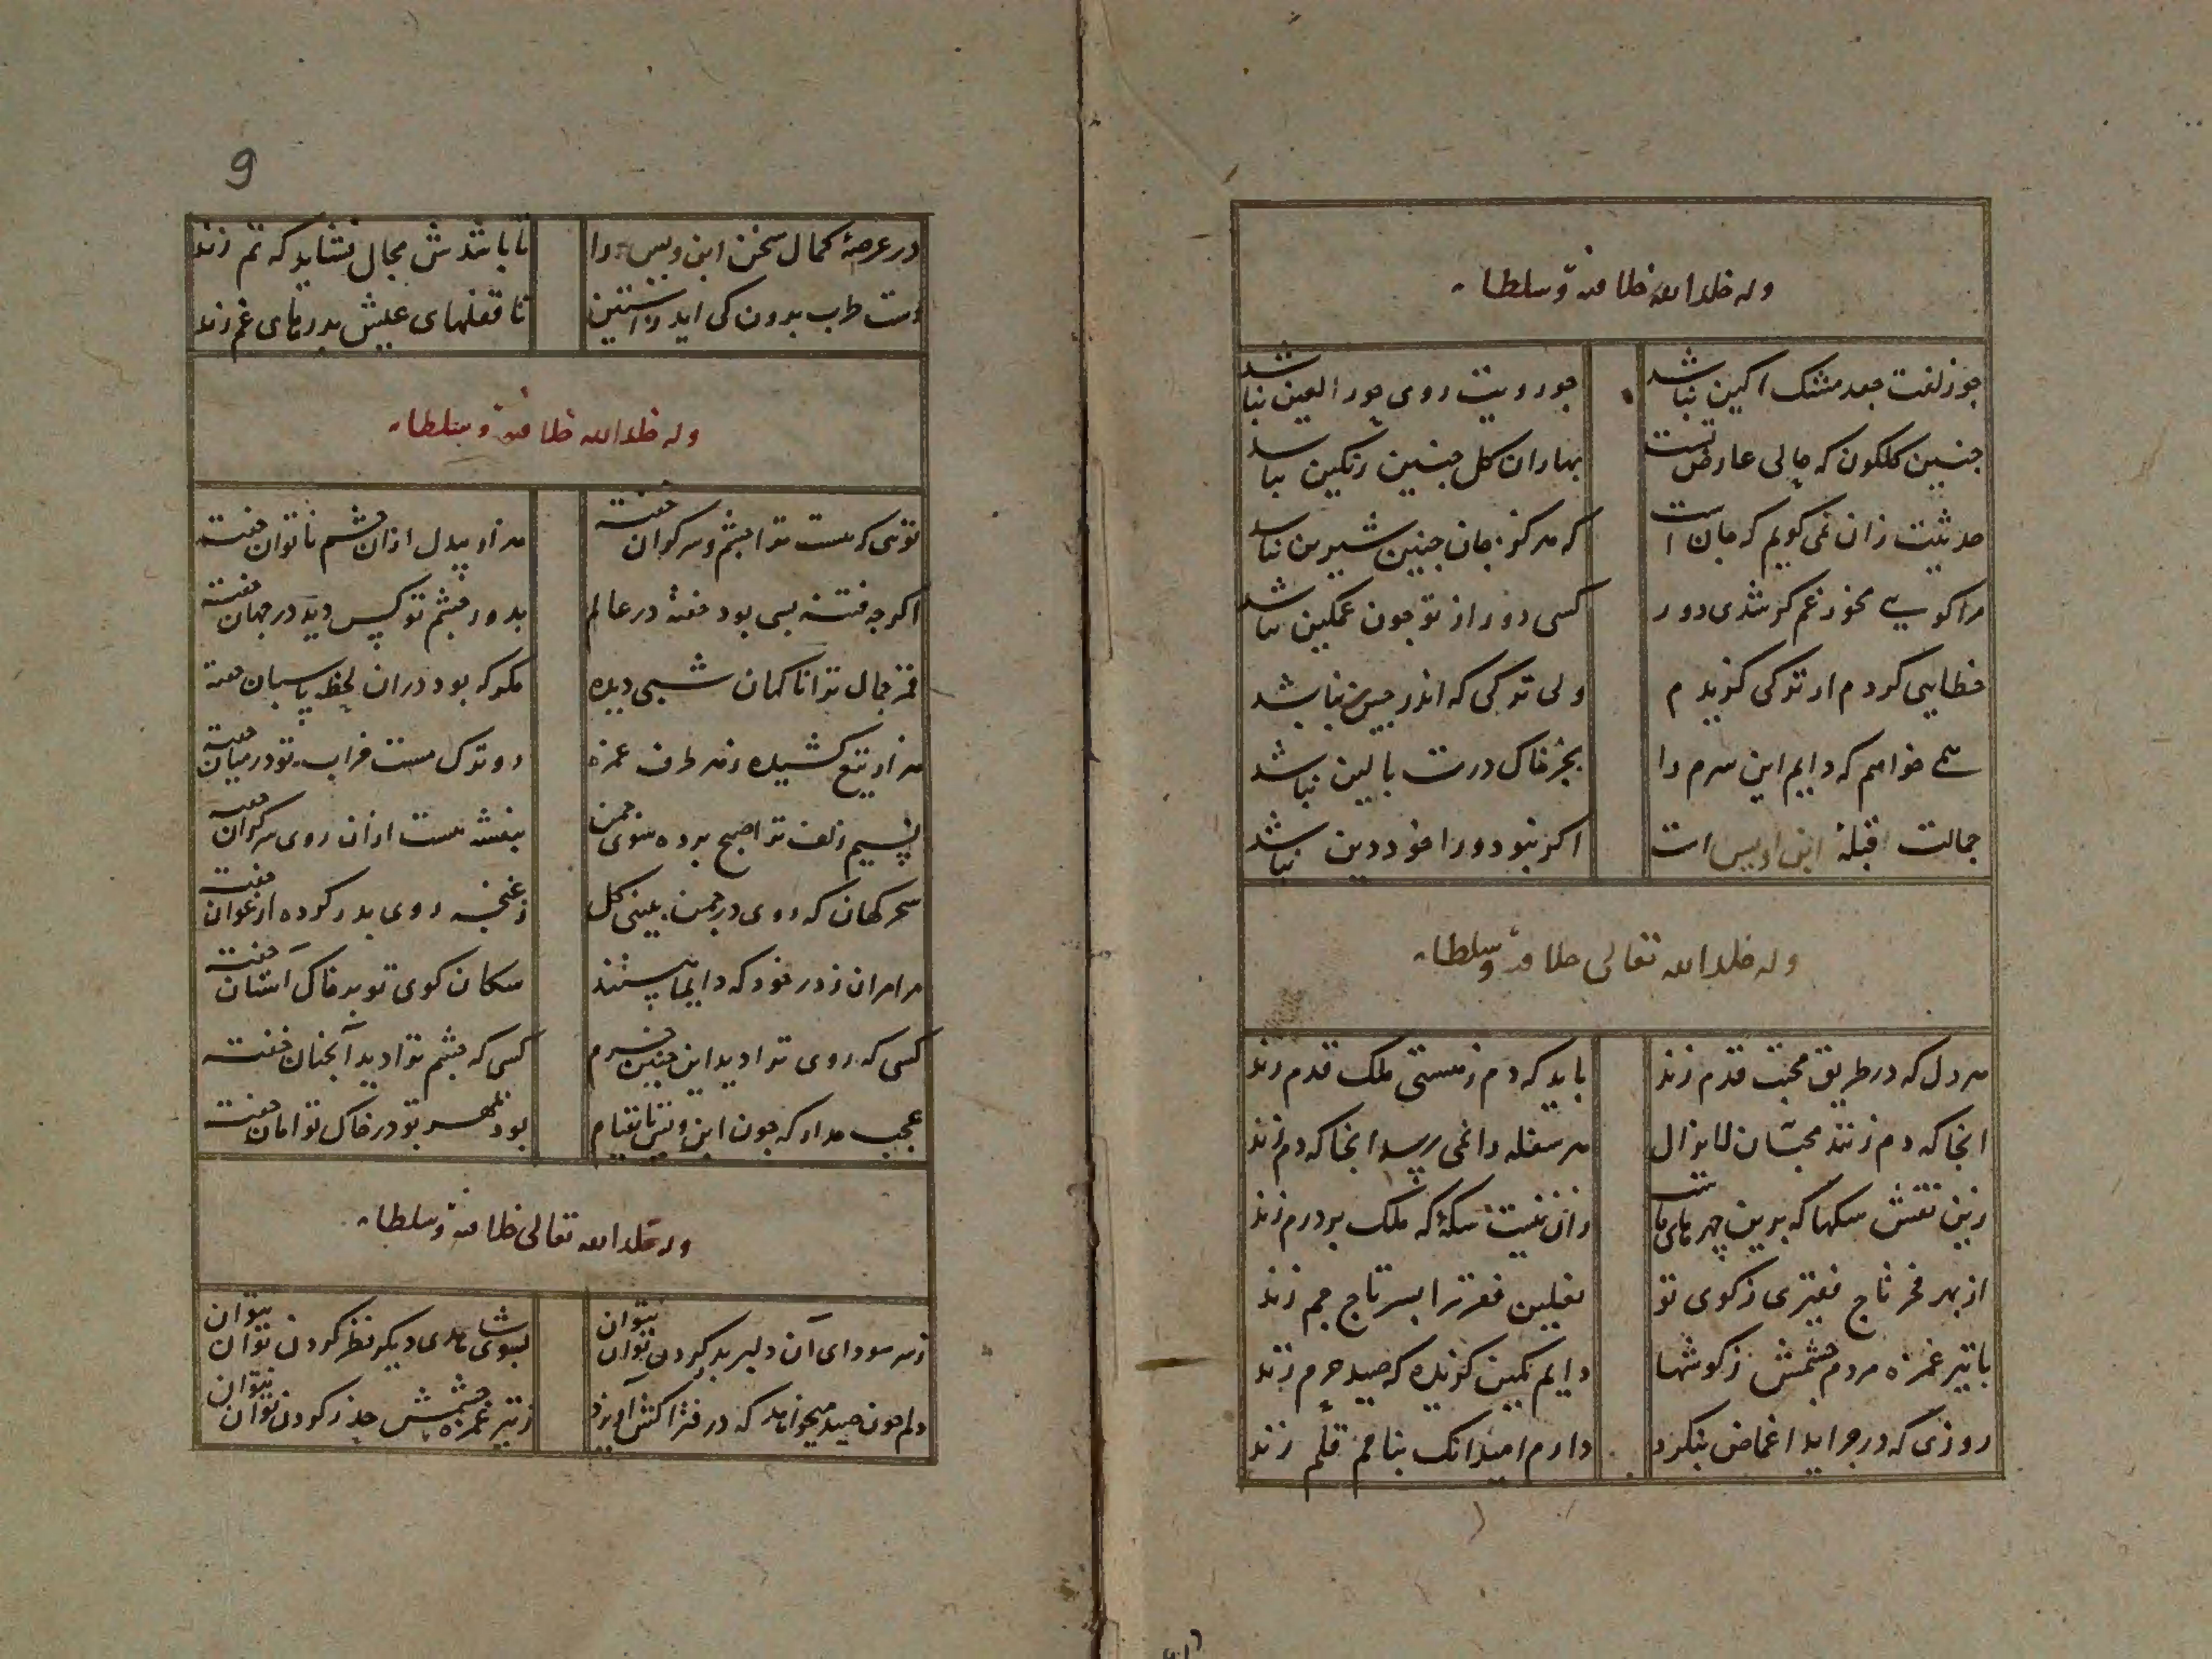 وله خلد الله خلافته و سلطانه
جو زلفت جعد مشک اکین نباشد جو رویت روی حور العین نباشد
جنین کلکون که حالی عارض تست بهاران کل جنین رنکین نباشد
حدیثت زان نمی کویم که جان است که هرکز جان جنین شیرین نباشد
مرا کویی مخور غم کر شدی دور کسی دور از تو جون غمکین نباشد
خطایی کردم ار ترکی کزیدم ولی ترکی که اندر جین نباشد
همی خواهم که دایم این سرم را بجز خاک درت بالین نباشد
جمالت قبلهٔ ابن اویس است اکر نبود ورا خود دین نباشد
وله خلد الله تعالی خلافته و سلطانه
هر دل که در طریق محبت قدم زند باید که دم ز هستی ملک قدم زند
انجا که دم زنند محبان لایزال هر سفله را نمی رسد انجا که دم زند
زین نقش سکها که برین جهرهای ماست زان نیست سکه که ملک بر درم زند
از بهر فخر تاج فقیری ز کوی تو نعلین فقر ترا بسر تاج جم زند
با تیر غمزه مردم جشمش ز کوشها دایم کمین کزیده که صید حرم زند
روزی که در جراید اغماض بنکرد دارم امید انک بنامم قلم زند
9
در عرصهٔ کمال سخن ابن ویس را تا باشدش مجال نشاید که تم زند
دست طرب برون کی اید ز استین تا قفلهای عیش بدرهای غم زند
وله خلد الله خلافته و سلطانه
تویی که هست ترا جشم و سرکران خفته هزار بیدل ازان جشم ناتوان خفته
اکرجه فتنه بسی بود خفته در عالم بدور جشم تو کس دید در جهان خفته
قمر جمال ترا ناکهان شبی دیده مکر که بود دران لحظه پاسبان خفته
هزار تیغ کشیده ز هر طرف غمزه دو ترک مست خراب تو در میان خفته
نسیم زلف ترا صبح برده سوی جمن بنفشه هست ازان روی سرکران خفته
سحرکهان که روی در جمن ببینی کل ز غنجه روی بدر کرده ارغوان خفته
مرا مران ز در خود که دایما هستند سکان کوی تو بر خاک آستان خفته
کسی که روی ترا دید این جنین خرم کسی که جشم ترا دید آنجنان خفته
عجب مدار که جون ابن ویس تا بقیام بود بمهر تو در خاک تو امان خفته
وله خلد الله تعالی خلافته و سلطانه
ز سر سودای آن دلبر بدر کردن توان نتوان بسوی شاهدی دیکر نظر کردن توان نتوان
دلم جون صید میخواهد که در فتراکش آویزد ز تیر غمزه جشمش حذر کردن توان نتوان